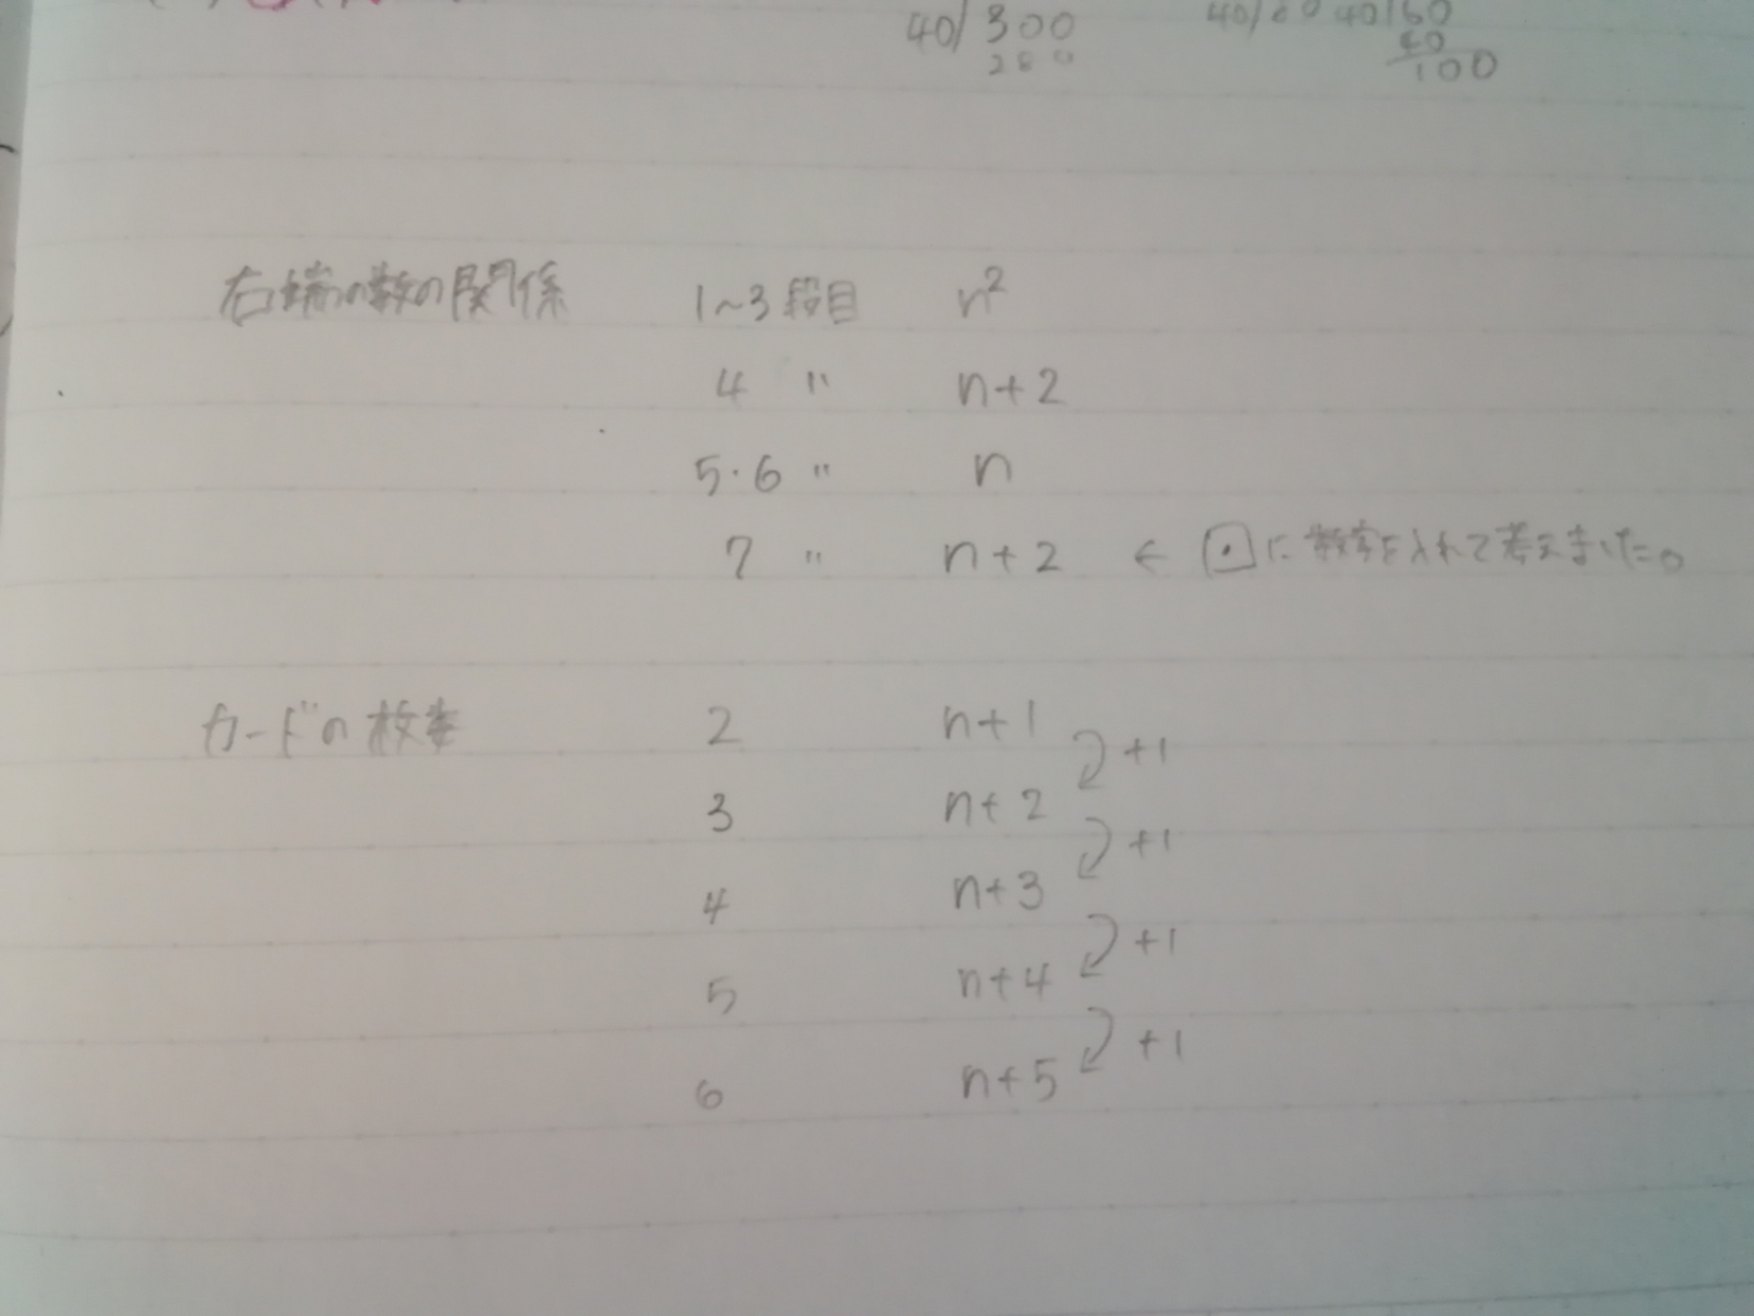 40)300 40)60 40)60
280 60
100
右端の数の関係 1~3段目 n²
4 〃 n+2
5・6 〃 n
7 〃 n+2 ← ⊡に数字を入れて考えました。
カードの枚数 2 n+1
+1
3 n+2
+1
4 n+3
+1
5 n+4
+1
6 n+5